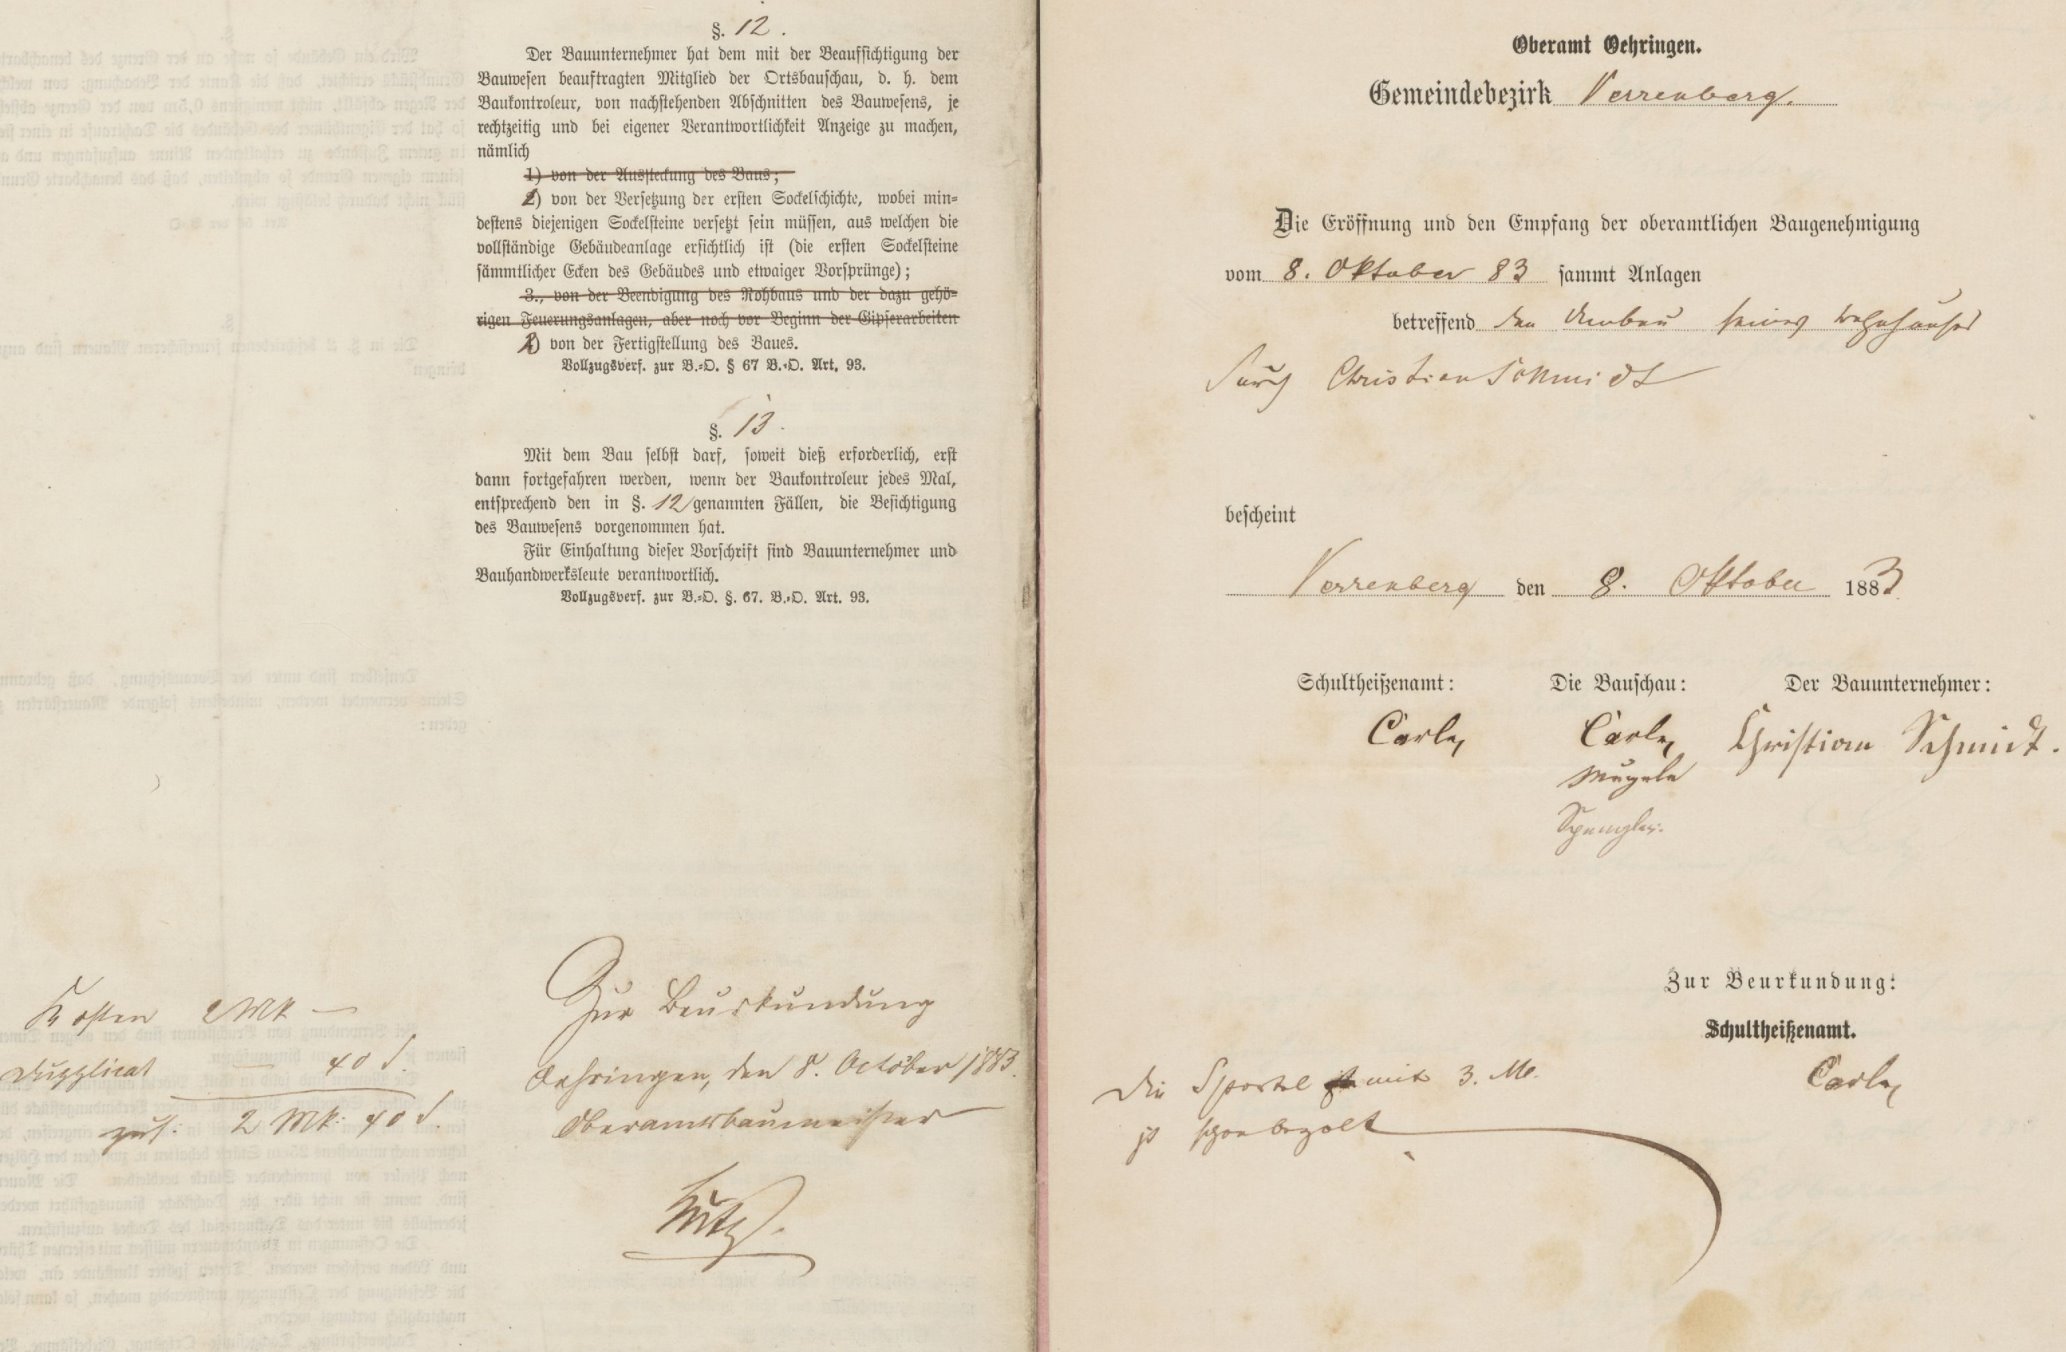 §. 12.
Der Bauunternehmer hat dem mit der Beaufsichtigung der
Bauwesen beauftragten Mitglied der Ortsbauschau, d. h. dem
Baukontroleur, von nachstehenden Abschnitten des Bauwesens, je
rechtzeitig und bei eigener Verantwortlichkeit Anzeige zu machen,
nämlich
1) von der Aussteckung des Baus;
1) von der Versetzung der ersten Sockelschichte, wobei min-
destens diejenigen Sockelsteine versetzt sein müssen, aus welchen die
vollständige Gebäudeanlage ersichtlich ist (die ersten Sockelsteine
sämmtlicher Ecken des Gebäudes und etwaiger Vorsprünge);
3., von der Beendigung des Rohbaus und der dazu gehö-
rigen Feuerungsanlagen, aber noch vor Beginn der Gipserarbeiten
2) von der Fertigstellung des Baues.
Vollzugsverf. zur B.=O. § 67 B.=O. Art. 93.
§. 13.
Mit dem Bau selbst darf, soweit dieß erforderlich, erst
dann fortgefahren werden, wenn der Baukontroleur jedes Mal,
entsprechend den in §. 12 genannten Fällen, die Besichtigung
des Bauwesens vorgenommen hat.
Für Einhaltung dieser Vorschrift sind Bauunternehmer und
Bauhandwerksleute verantwortlich.
Vollzugsverf. zur B.=O. §. 67. B.=O. Art. 93.
Kosten 2 Mk —
Dupplicat — 40 ₰.
zus: 2 Mk: 40 ₰.
Zur Beurkundung
Oehringen, den 8. October 1883.
Oberamtsbaumeister
Oberamt Oehringen.
Gemeindebezirk Verrenberg.
Die Eröffnung und den Empfang der oberamtlichen Baugenehmigung
vom 8. Oktober 83 sammt Anlagen
betreffend den Umbau seines Wohnhauses
durch Christian Schmidt
bescheint
Verrenberg den 8. Oktober 1883
Schultheißenamt: Die Bauschau: Der Bauunternehmer:
Carle Carle Christian Schmidt.
Mugele
Spengler.
Zur Beurkundung:
Schultheißenamt.
Carle
Die Sportel mit 3. M.
ist schon bezalt